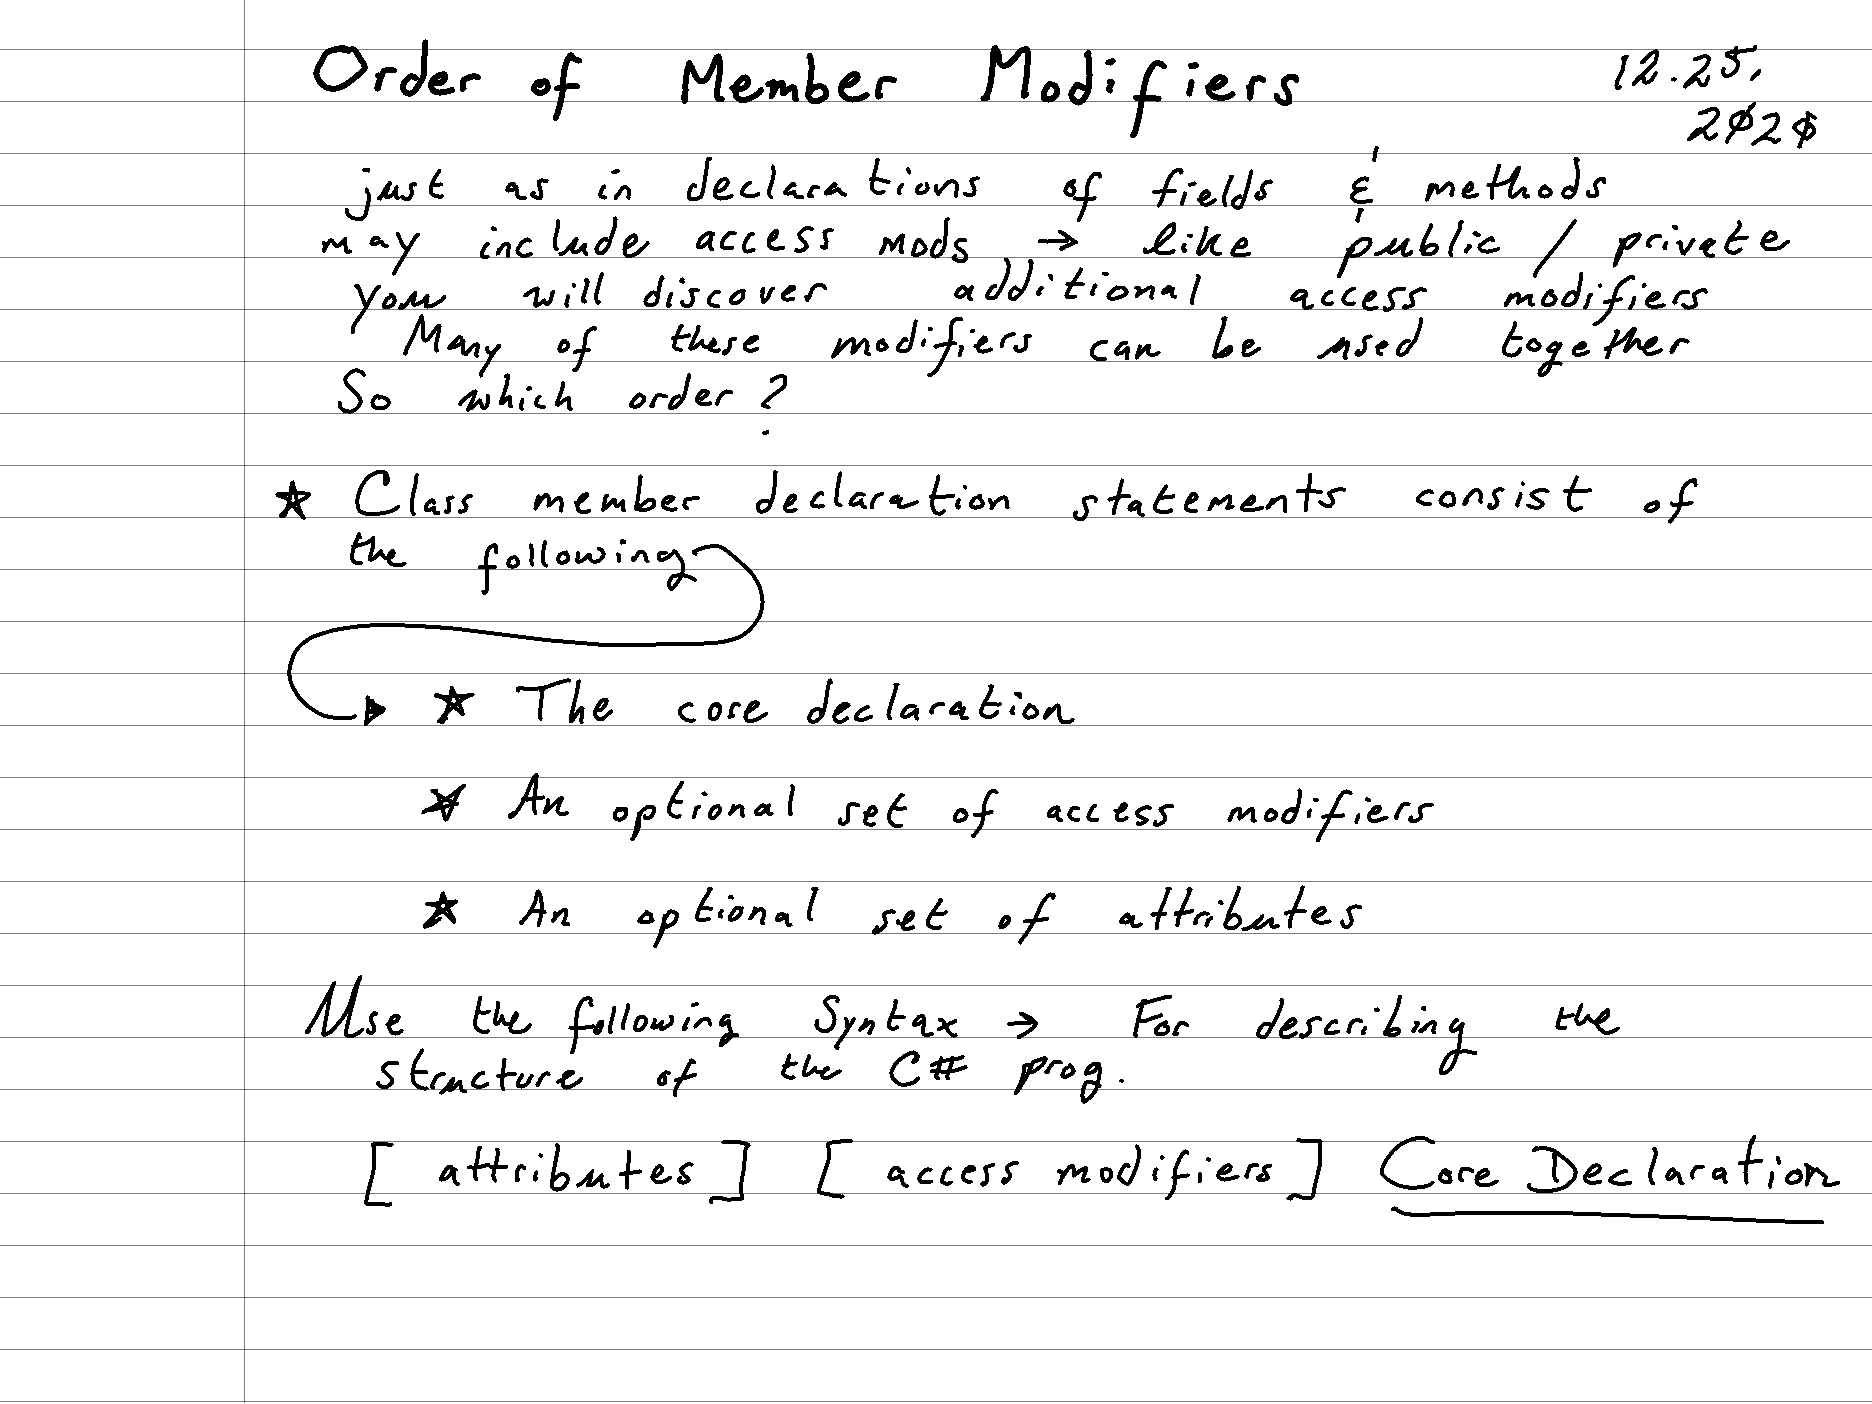 Order of Member Modifiers 12.25.
2020
just as in declarations of fields & methods
may include access mods → like public / private
you will discover additional access modifiers
Many of these modifiers can be used together
So which order ?
★ Class member declaration statements consist of
the following
★ The core declaration
★ An optional set of access modifiers
★ An optional set of attributes
Use the following Syntax → For describing the
structure of the C# prog.
[ attributes ] [ access modifiers ] Core Declaration